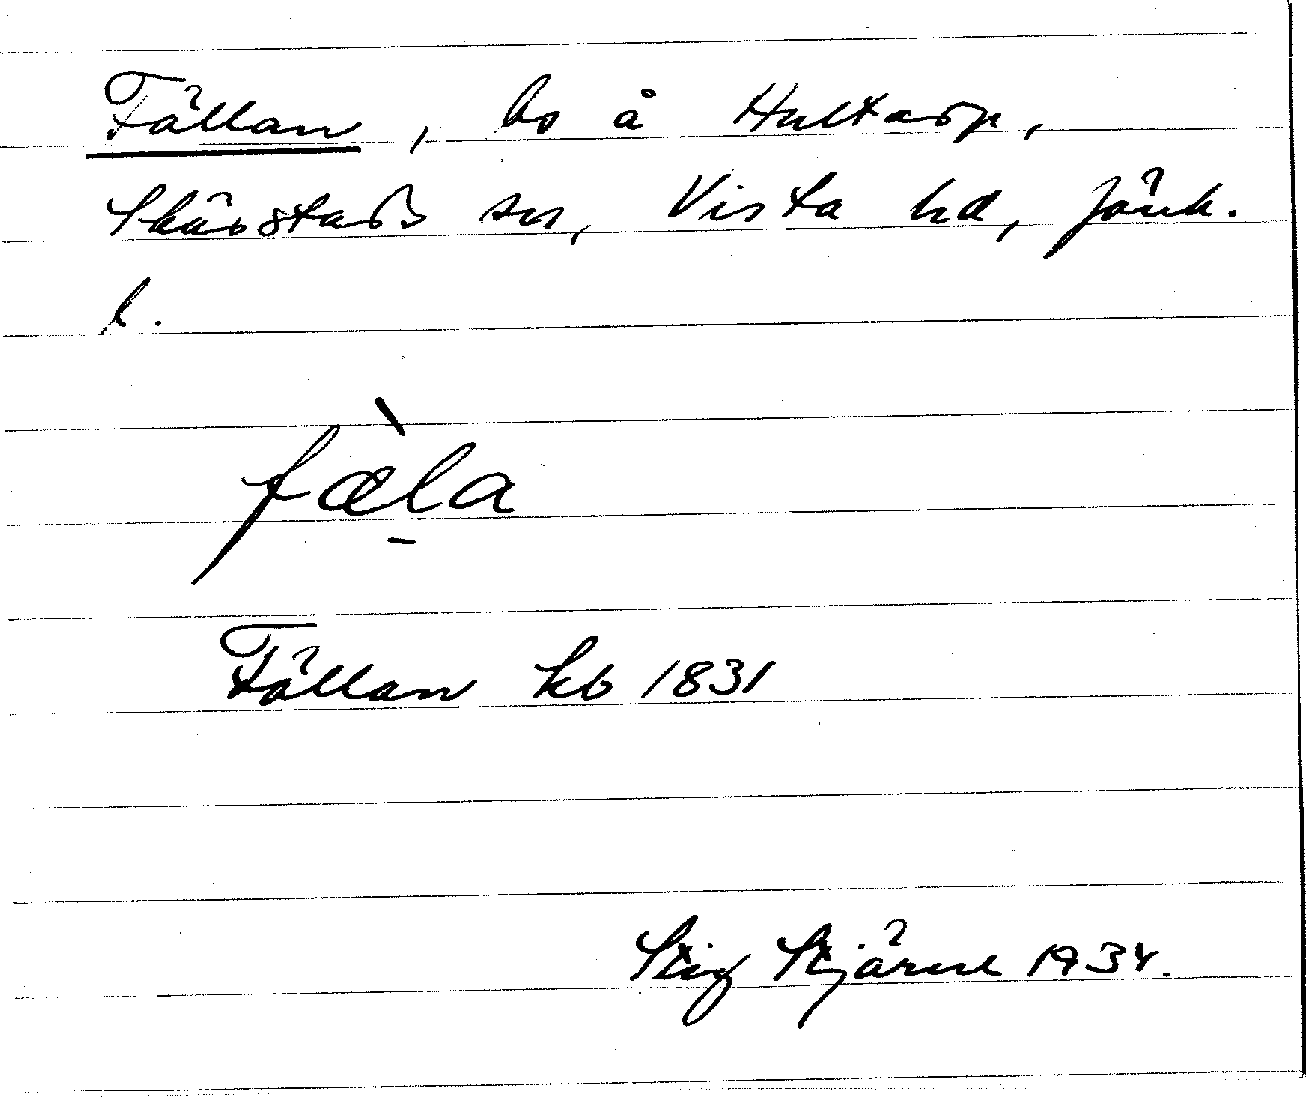 Fällan, bs å Hultarp,
Skärstads sn, Vista hd, Jönk.
l.
fæ̀la
Fällan kb 1831
Stig Stjärne 1934.